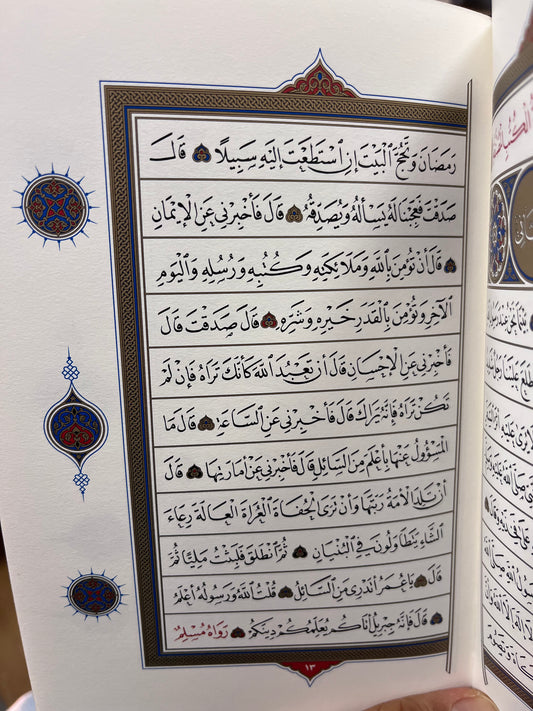 رَمَضَانَ وَتَحُجَّ الْبَيْتَ إِنِ اسْتَطَعْتَ إِلَيْهِ سَبِيلًا قَالَ
صَدَقْتَ فَعَجِبْنَا لَهُ يَسْأَلُهُ وَيُصَدِّقُهُ قَالَ فَأَخْبِرْنِي عَنِ الْإِيمَانِ
قَالَ أَنْ تُؤْمِنَ بِاللَّهِ وَمَلَائِكَتِهِ وَكُتُبِهِ وَرُسُلِهِ وَالْيَوْمِ
الْآخِرِ وَتُؤْمِنَ بِالْقَدَرِ خَيْرِهِ وَشَرِّهِ قَالَ صَدَقْتَ قَالَ
فَأَخْبِرْنِي عَنِ الْإِحْسَانِ قَالَ أَنْ تَعْبُدَ اللَّهَ كَأَنَّكَ تَرَاهُ فَإِنْ لَمْ
تَكُنْ تَرَاهُ فَإِنَّهُ يَرَاكَ قَالَ فَأَخْبِرْنِي عَنِ السَّاعَةِ قَالَ مَا
الْمَسْؤُولُ عَنْهَا بِأَعْلَمَ مِنَ السَّائِلِ قَالَ فَأَخْبِرْنِي عَنْ أَمَارَتِهَا قَالَ
أَنْ تَلِدَ الْأَمَةُ رَبَّتَهَا وَأَنْ تَرَى الْحُفَاةَ الْعُرَاةَ الْعَالَةَ رِعَاءَ
الشَّاءِ يَتَطَاوَلُونَ فِي الْبُنْيَانِ ثُمَّ انْطَلَقَ فَلَبِثْتُ مَلِيًّا ثُمَّ
قَالَ يَا عُمَرُ أَتَدْرِي مَنِ السَّائِلُ قُلْتُ اللَّهُ وَرَسُولُهُ أَعْلَمُ
قَالَ فَإِنَّهُ جِبْرِيلُ أَتَاكُمْ يُعَلِّمُكُمْ دِينَكُمْ رَوَاهُ مُسْلِمٌ
١٣